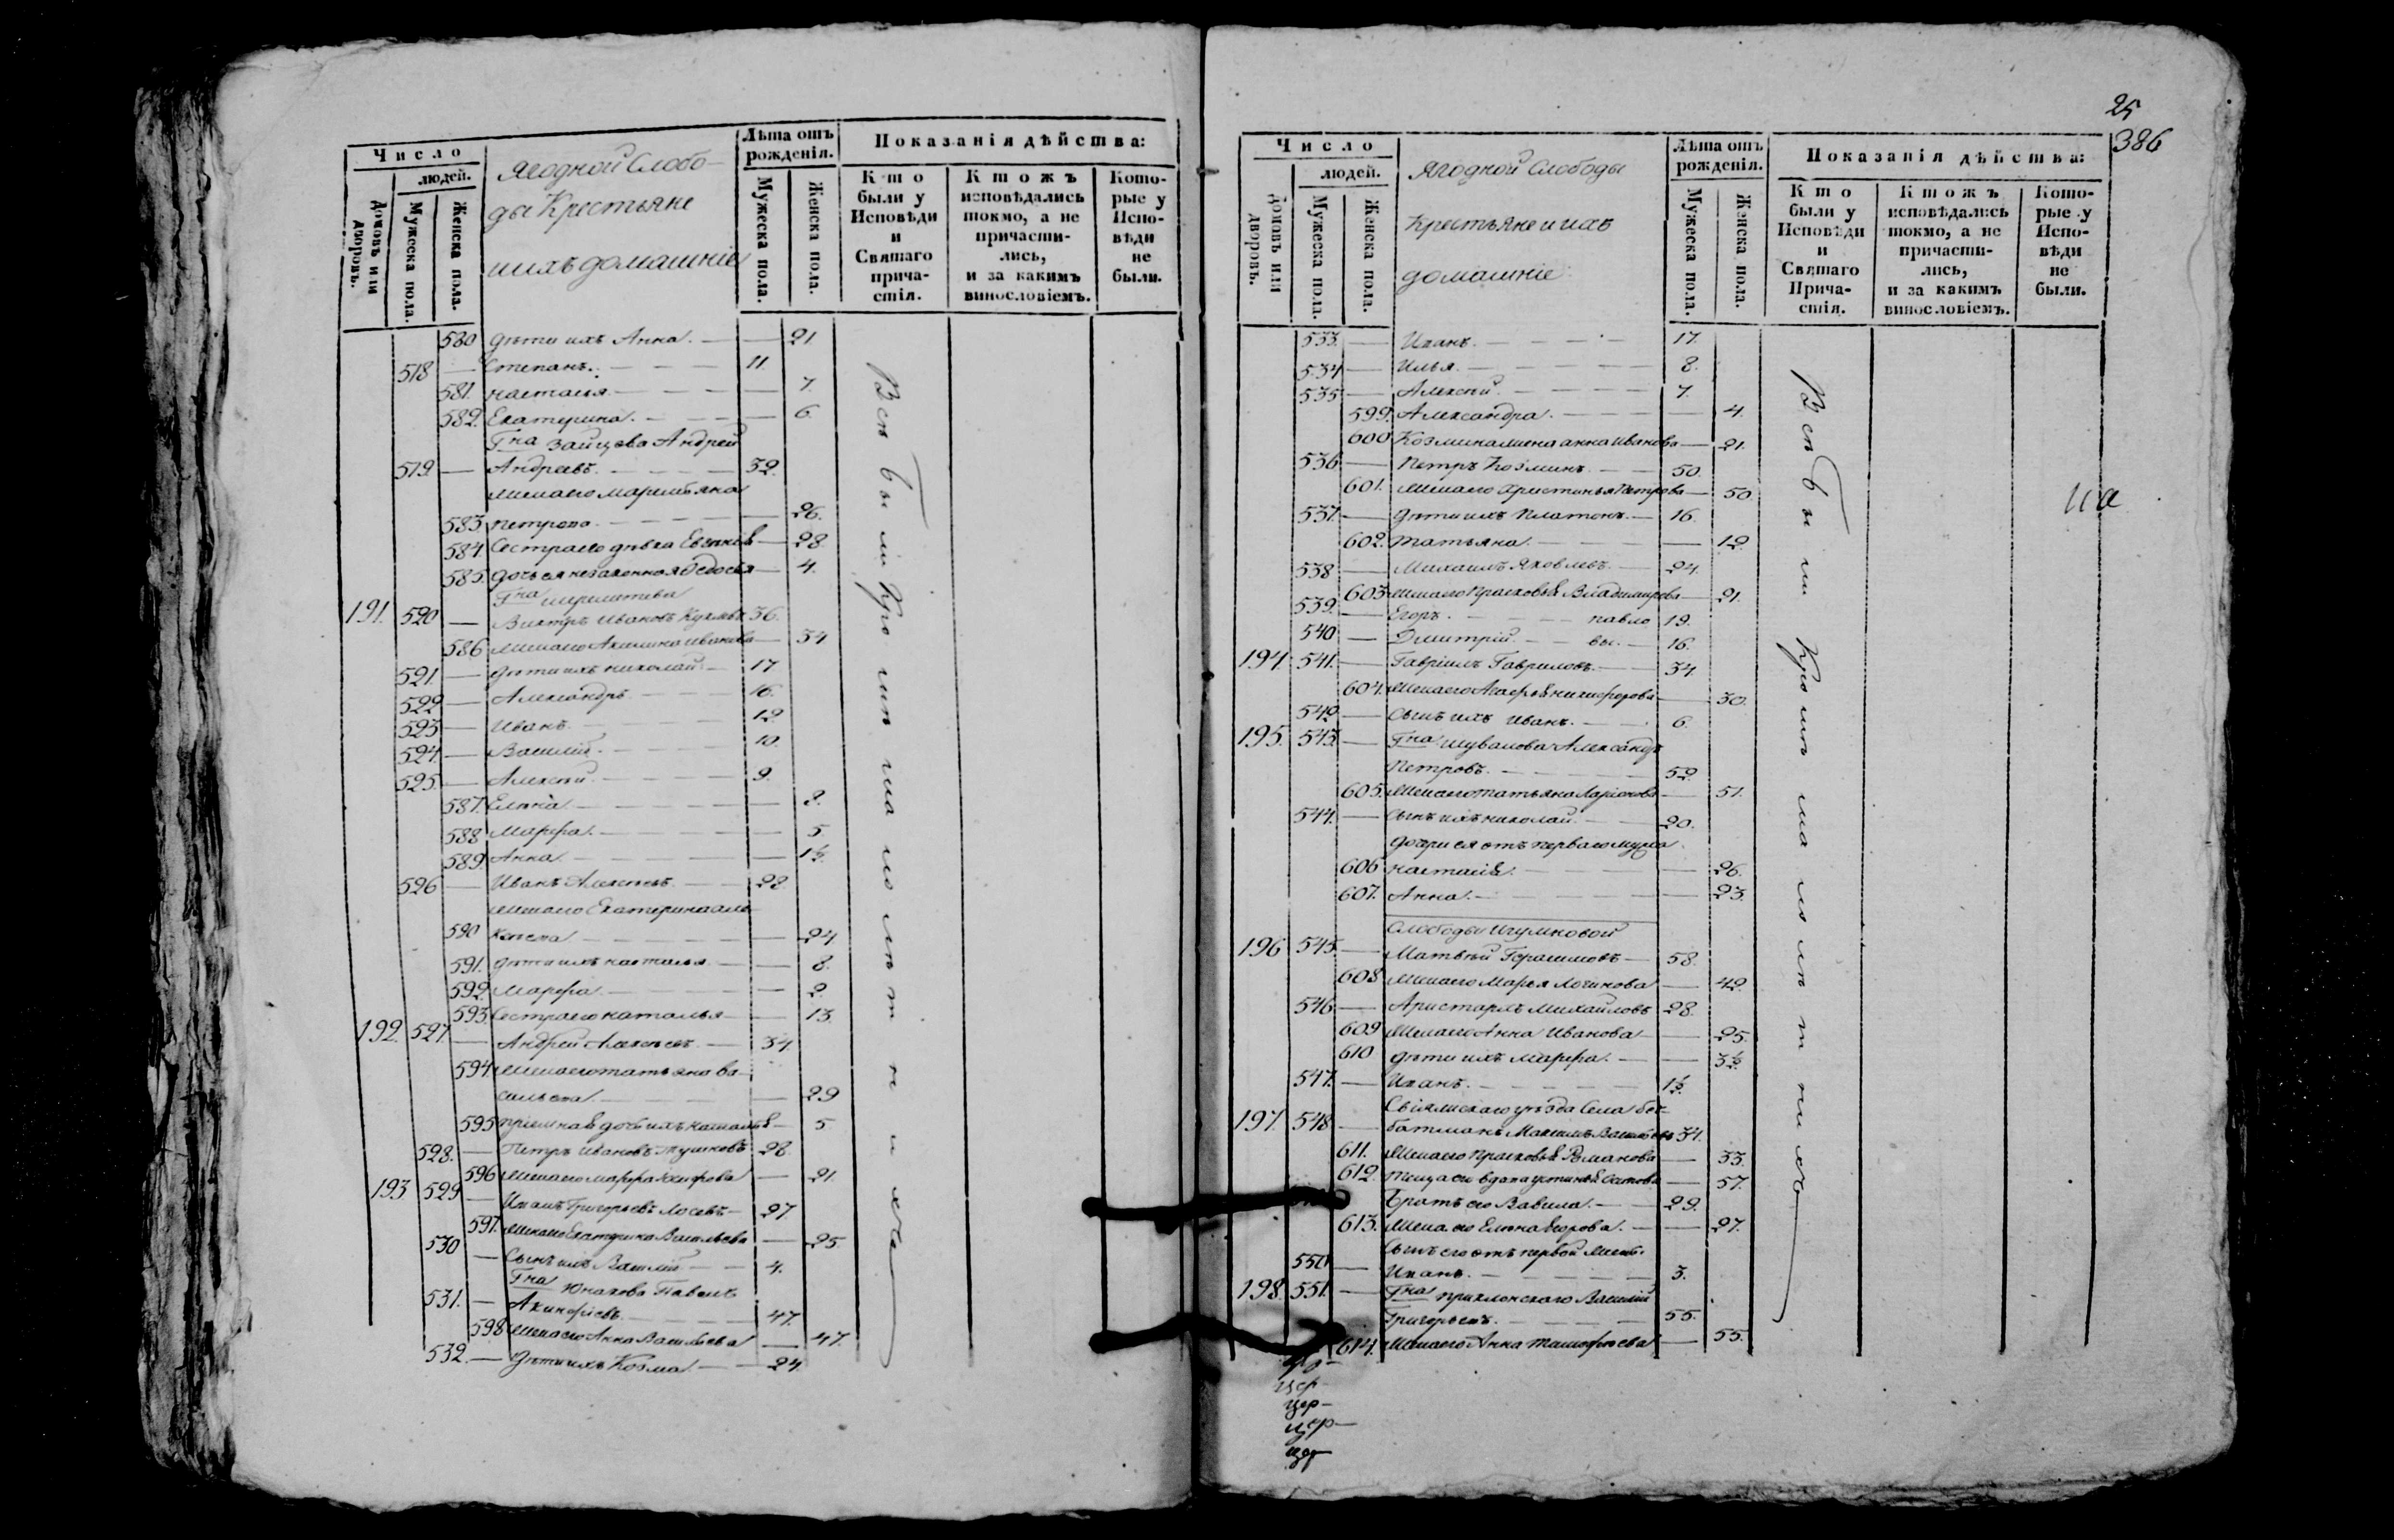 Число
людей.
Домовъ или дворовъ.
Мужеска пола.
Женска пола.
Ягодной Слобо-
ды Крестьяне
и ихъ домашніе
Лѣта отъ
рожденія.
Мужеска пола.
Женска пола.
Показанія дѣйства:
Кто
были у
Исповѣди
и
Святаго
прича-
стія.
Ктожъ
исповѣдались
токмо, а не
причасти-
лись,
и за какимъ
винословіемъ.
Кото-
рые у
Испо-
вѣди
не
были.
580 дѣти ихъ Анна. — — 21.
518 — Степанъ. — 11.
581. Настасья — — 7.
582. Екатерина. — — 6.
Гна Зайцова Андрей
519. — Андреевъ. — 32.
жена его Маремьяна
583 Петрова. — — 26.
584 Сестра его дѣвка — 28.
585. дочь ея незаконная Ѳедосья — 4.
Гна Шереметева
191. 520 — Ивановъ 36.
586 жена его Акилина Иванова — 34
521. — дѣти ихъ Николай — 17
522 — Александръ — 16.
523 — Иванъ. — 12
524. — Василій. — 10.
525. — Алексѣй. — 9.
587. Елена. — — 8.
588 Марфа. — — 5
589. Анна. — — 1½.
526 — Иванъ Алексѣевъ. — 28
жена его Екатерина Але-
590 ксѣева — — 24
591. дѣти ихъ Настасья. — — 8.
592 Марфа. — — 2.
593. Сестра его Наталья — — 13.
192. 527. — Андрей Алексѣевъ. — 34.
594 жена его Татьяна Ва-
сильева. — — 29
595 дочь ихъ — 5
528. — Петръ Ивановъ 28.
596 жена его Марфа — 21.
193 529 — Иванъ Григорьевъ Лосевъ — 27.
597. жена его Екатерина Васильева — 25.
530 — Сынъ ихъ Василій — 4.
Гна Юнакова Павелъ
531. — Акинфіевъ — 47.
598 жена его Анна Васильева — 47.
532. — дѣти ихъ Козма. — 24.
Всѣ были кромѣ малолѣтнихъ
25
386
Число
людей.
Домовъ или дворовъ.
Мужеска пола.
Женска пола.
Ягодной Слободы
Крестьяне и ихъ
домашніе
Лѣта отъ
рожденія.
Мужеска пола.
Женска пола.
Показанія дѣйства:
Кто
были у
Исповѣди
и
Святаго
Прича-
стія.
Ктожъ
исповѣдались
токмо, а не
причасти-
лись,
и за какимъ
винословіемъ.
Кото-
рые у
Испо-
вѣди
не
были.
533. — Иванъ. — 17.
534 — Илья. — 8.
535 — Алексѣй. — 7.
599. Александра. — — 4.
600 Козмина жена Анна Иванова — 21.
536 — Петръ Козминъ. — 50.
601. жена его Христинья Петрова — 50.
537. — дѣти ихъ Платонъ. — 16.
602. Татьяна. — — 12.
538 — Михаилъ Яковлевъ. — 24.
603 жена его Прасковья Владимирова — 21.
539. — Егоръ. — Павло 19.
540 — Дмитрій. — вы. — 16.
194. 541. — Гавріилъ Гавриловъ. — 34.
604. жена его Агафья Никифорова — 30.
542 — Сынъ ихъ Иванъ. — 6.
195. 543. — Гна Шувалова Александръ
Петровъ. — 52.
605. жена его Татьяна Ларіонова — 51.
544. — Сынъ ихъ Николай. — 20.
дочери ея отъ перваго мужа
606 Настасія. — — 26.
607. Анна. — — 23.
Слободы Игумновой
196 545. — Матвѣй Герасимовъ — 58.
608. жена его Марья Логинова — 42.
546 — Аристархъ Михайловъ 28.
609 жена его Анна Иванова — 25.
610 дѣти ихъ Марфа. — — 3½.
547. — Иванъ. — 1½.
Свіяжскаго уѣзда Села
197. 548 — Василь 34.
611. жена его Прасковья Романова — 33.
612. Теща его вдова — 57.
Братъ его Вавила. — 29.
613. жена его Елена Егорова. — — 27.
Сынъ его отъ первой жены
550 — Иванъ. — 3.
198. 551. — Гна Приклонскаго Василій
Григорьевъ. — 55.
614. жена его Анна Тимофеева — 55.
Всѣ были кромѣ малолѣтнихъ
на
цер—
цер—
цер—
цер